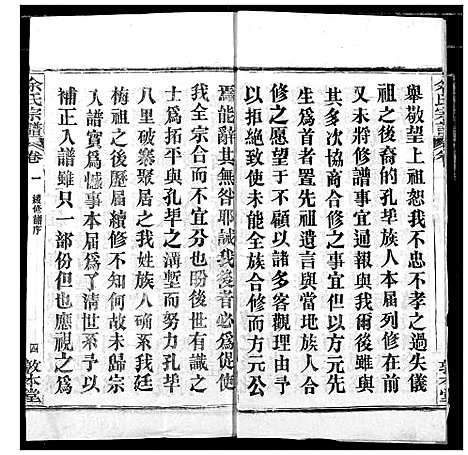 舉敬望上祖恕我不忠不孝之過失儀
祖之後裔的孔垏族人本屆列修在前
又未將修譜事宜通報與我爾後雖與
其多次協商合修之事宜但以方元元
生爲首者置先祖遺言與當地族人合
修之愿望于不顧以諸多客觀理由予
以拒絕致使未能全族合修而方元公
焉能辭其無咎耶誡我後者必爲促使
我全宗合而为一也盼後世有識之
士爲拓平與孔垏之溝塹而努力孔垏
八里破寨聚居之我姓族人确系我廷
梅祖之後歷屆續修不知何故未歸宗
入譜實爲憾事本屆爲了清世系予以
補正入譜雖只一部份但也應視之爲
余氏宗譜 卷一 續修譜序 四 敦本堂
余氏宗譜 敦本堂